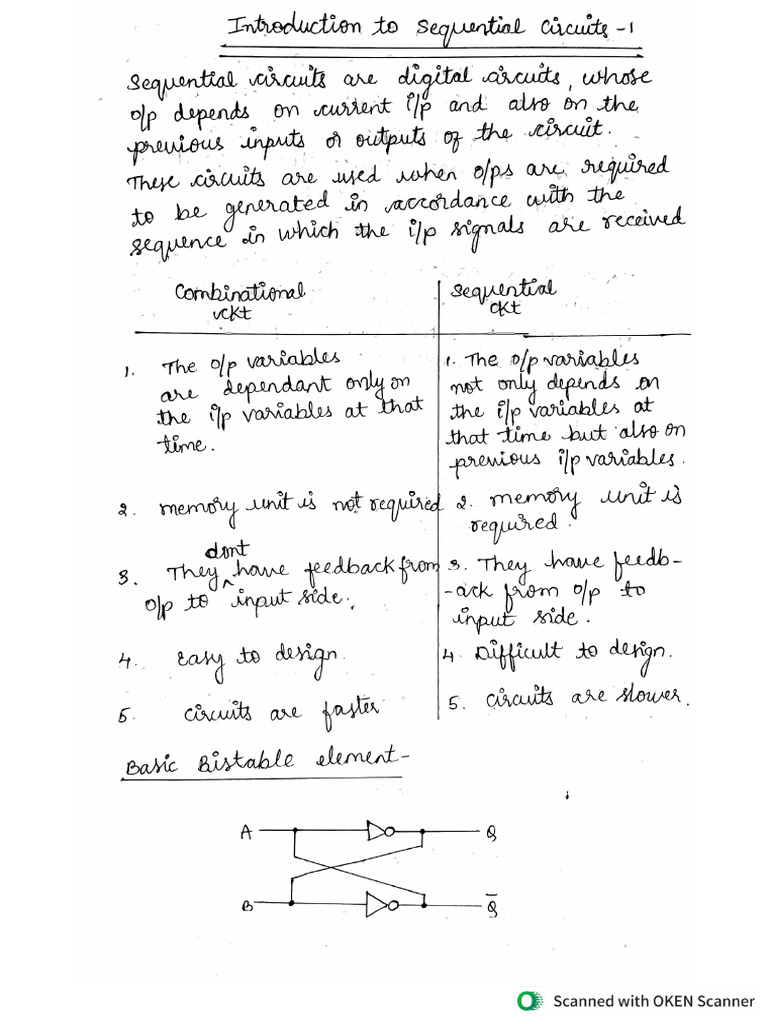 Introduction to Sequential Circuits -1
Sequential circuits are digital circuits, whose
o/p depends on current i/p and also on the
previous inputs or outputs of the circuit.
These circuits are used when o/ps are required
to be generated in accordance with the
sequence in which the i/p signals are received
Combinational
ckt
Sequential
ckt
1. The o/p variables
are dependant only on
the i/p variables at that
time.
1. The o/p variables
not only depends on
the i/p variables at
that time but also on
previous i/p variables.
2. memory unit is not required
2. memory unit is
required.
3. They dont have feedback from
o/p to input side.
3. They have feedb-
-ack from o/p to
input side.
4. Easy to design.
4. Difficult to design.
5. circuits are faster
5. circuits are slower.
Basic Bistable element-
A
Q
B
Q̅
Scanned with OKEN Scanner